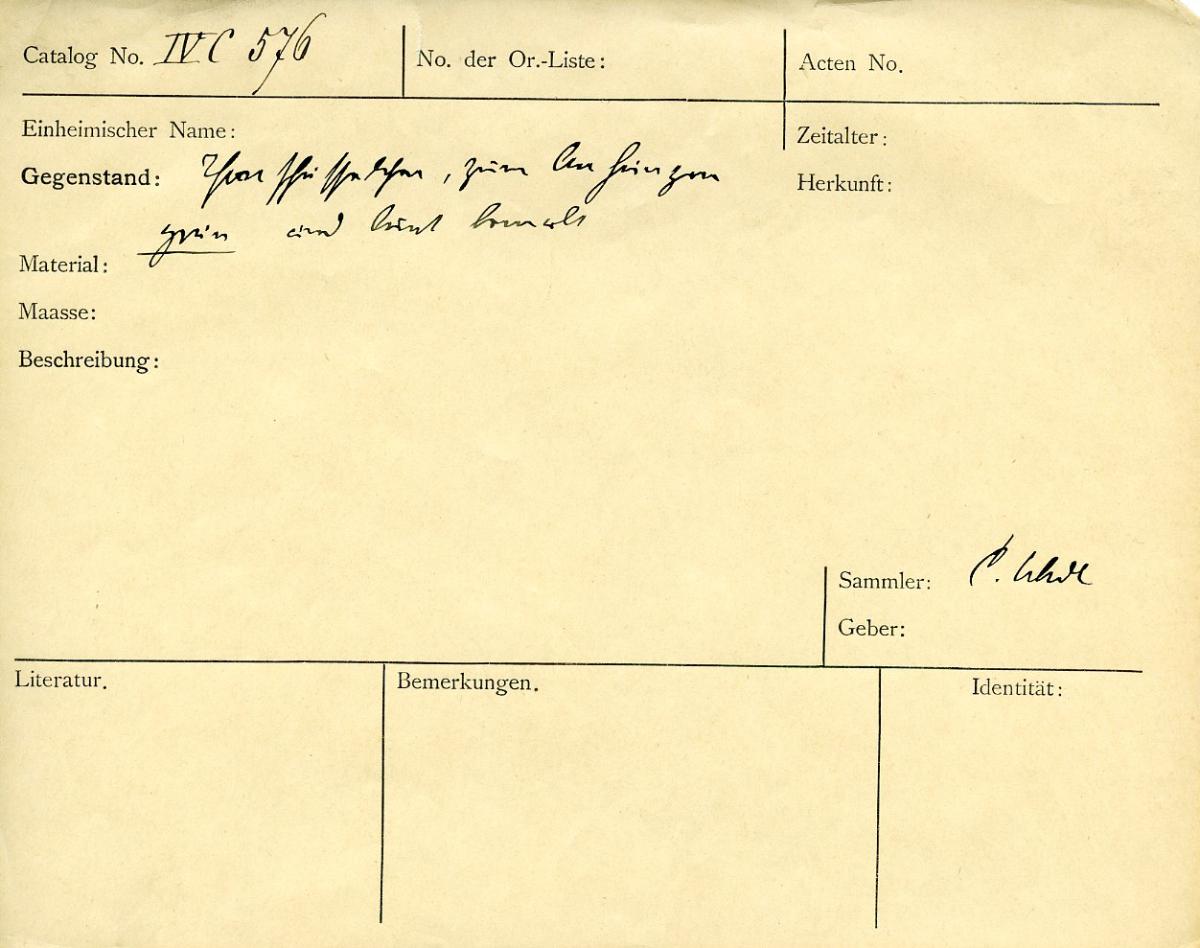 Catalog No. IV C 576
No. der Or.-Liste:
Acten No.
Einheimischer Name:
Zeitalter:
Gegenstand: Thonschüsselchen, zum Anhängen
grün und bunt bemalt
Herkunft:
Material:
Maasse:
Beschreibung:
Sammler: C. Uhde
Geber:
Literatur.
Bemerkungen.
Identität: